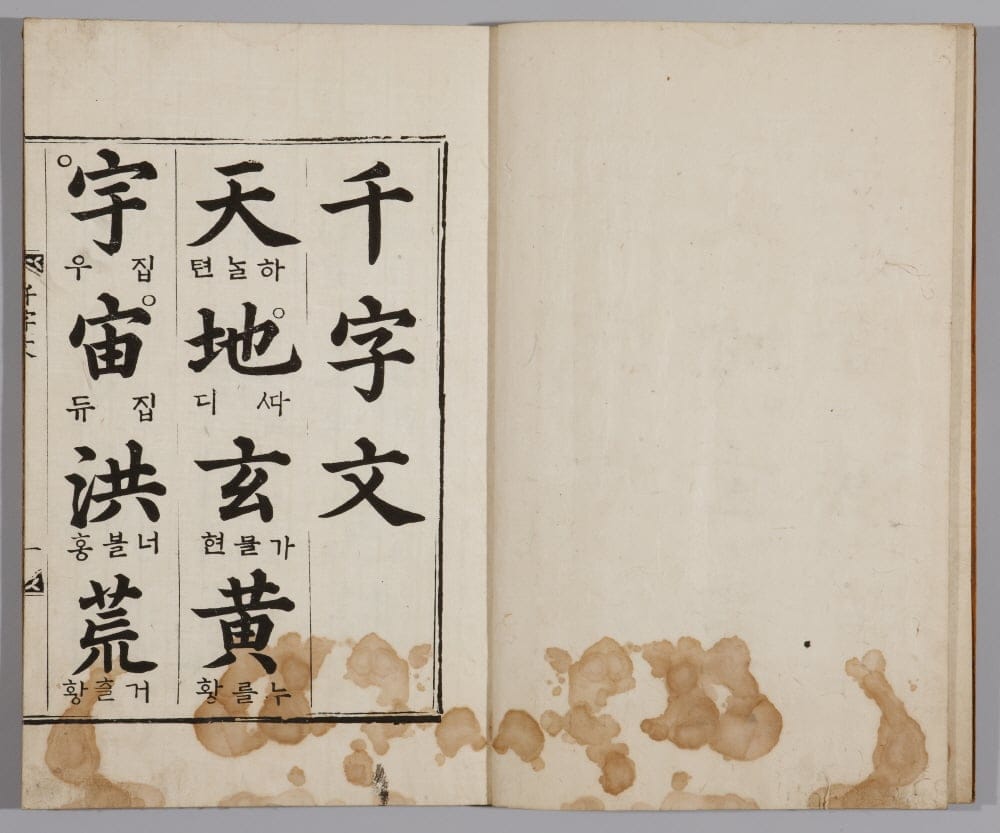 千字文
天
하ᄂᆞᆯ텬
地
ᄯᅡ디
玄
가믈현
黃
누를황
宇
집우
宙
집듀
洪
너블홍
荒
거츨황